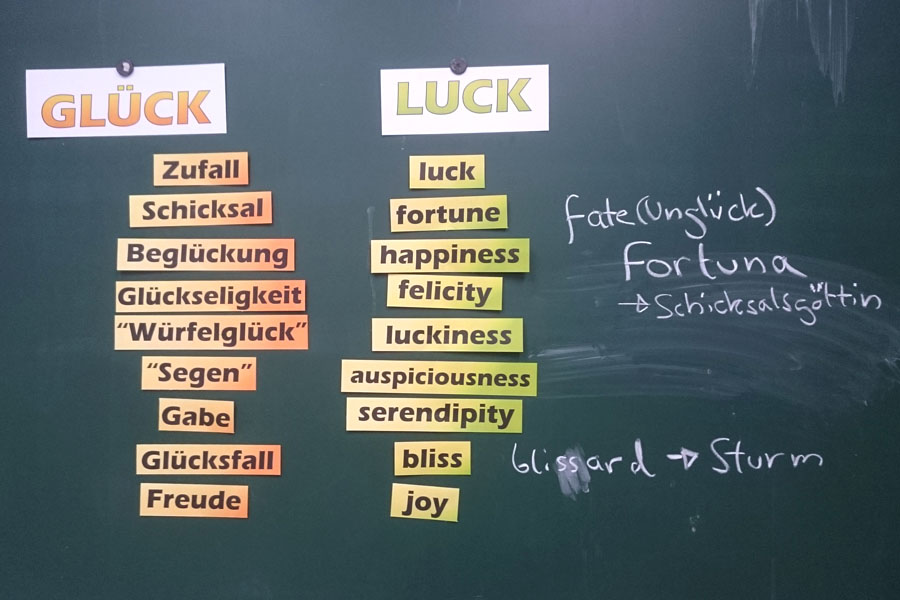 GLÜCK
Zufall
Schicksal
Beglückung
Glückseligkeit
“Würfelglück”
“Segen”
Gabe
Glücksfall
Freude
LUCK
luck
fortune
happiness
felicity
luckiness
auspiciousness
serendipity
bliss
joy
fate (Unglück)
Fortuna
→ Schicksalsgöttin
blissard → Sturm